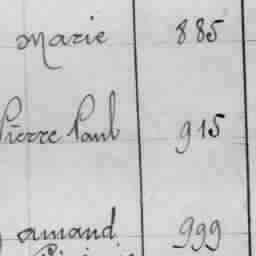 Marie 885
Pierre Paul 915
amand 999